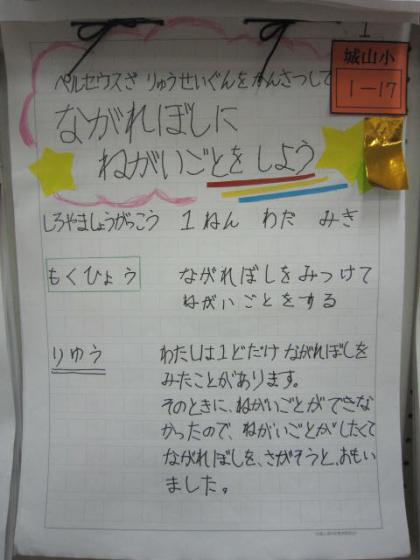 1
城山小
1-17
ペルセウスざ りゅうせいぐんを かんさつして
ながれぼしに
ねがいごとを しよう
しろやましょうがっこう 1ねん わだ みき
もくひょう ながれぼしをみつけて
ねがいごとをする
りゆう わたしは1どだけ ながれぼしを
みたことがあります。
そのときに、ねがいごとができな
かったので、ねがいごとがしたくて
ながれぼしを、さがそうと、おもい
ました。